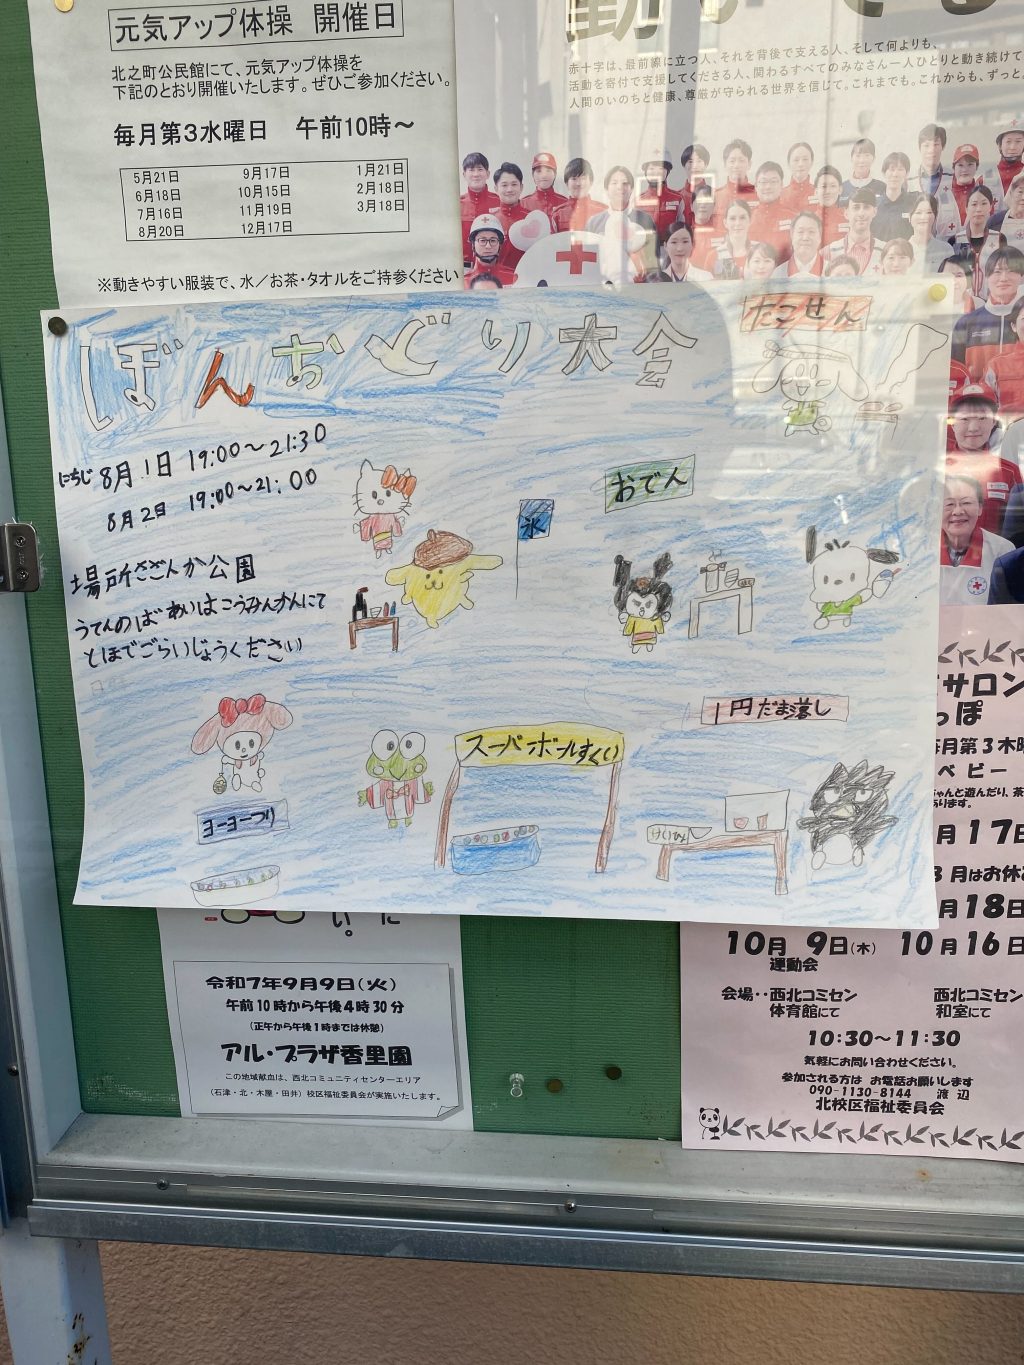 元気アップ体操 開催日
北之町公民館にて、元気アップ体操を
下記のとおり開催いたします。ぜひご参加ください。
毎月第3水曜日 午前10時～
5月21日 9月17日 1月21日
6月18日 10月15日 2月18日
7月16日 11月19日 3月18日
8月20日 12月17日
※動きやすい服装で、水／お茶・タオルをご持参ください
赤十字は、最前線に立つ人、それを背後で支える人、そして何よりも、
活動を寄付で支援してくださる人、関わるすべてのみなさん一人ひとりと動き続けて
人間のいのちと健康、尊厳が守られる世界を信じて。これまでも。これからも、ずっと。
ぼんおどり大会
たこせん
にちじ 8月1日 19:00～21:30
8月2日 19:00～21:00
おでん
氷
場所さざんか公園
うてんのばあいはこうみんかんにて
とほでごらいじょうください
1円だま落し
スーパーボールすくい
ヨーヨーつり
けいひん
に
い。
令和7年9月9日(火)
午前10時から午後4時30分
(正午から午後1時までは休憩)
アル・プラザ香里園
この地域献血は、西北コミュニティセンターエリア
(石津・北・木屋・田井)校区福祉委員会が実施いたします。
サロン
っぽ
毎月第3木曜
ベビー
ちゃんと遊んだり、茶
あります。
月17日
8月はお休み
月18日
10月9日(木) 10月16日
運動会
会場‥西北コミセン 西北コミセン
体育館にて 和室にて
10:30～11:30
気軽にお問い合わせください。
参加される方は お電話お願いします
090-1130-8144 渡辺
北校区福祉委員会